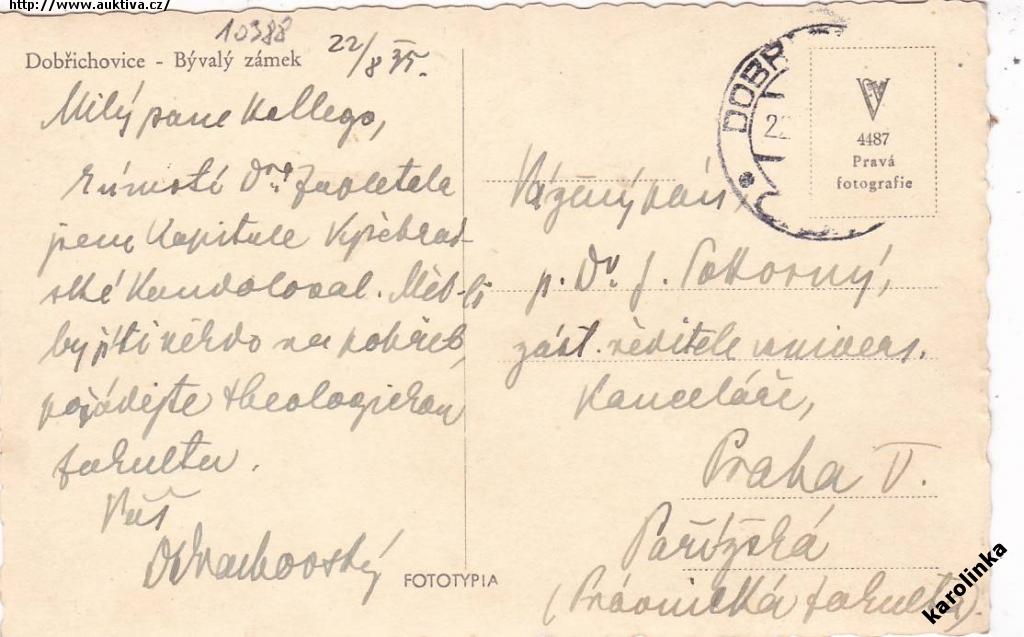 http://www.auktiva.cz/
10388
Dobřichovice - Bývalý zámek
22/8 35.
Milý pane kollego,
Dra
jsem Kapitule Vyšehrad-
ské kondoloval. Měl-li
by jíti někdo na pohřeb,
požádejte theologickou
fakultu.
Váš
FOTOTYPIA
DOBŘ
22
4487
Pravá
fotografie
Vážený pán,
p. Dr J. Pokorný,
zást. ředitele univers.
kanceláře,
Praha V.
Pařížská
(Právnická fakulta).
karolinka